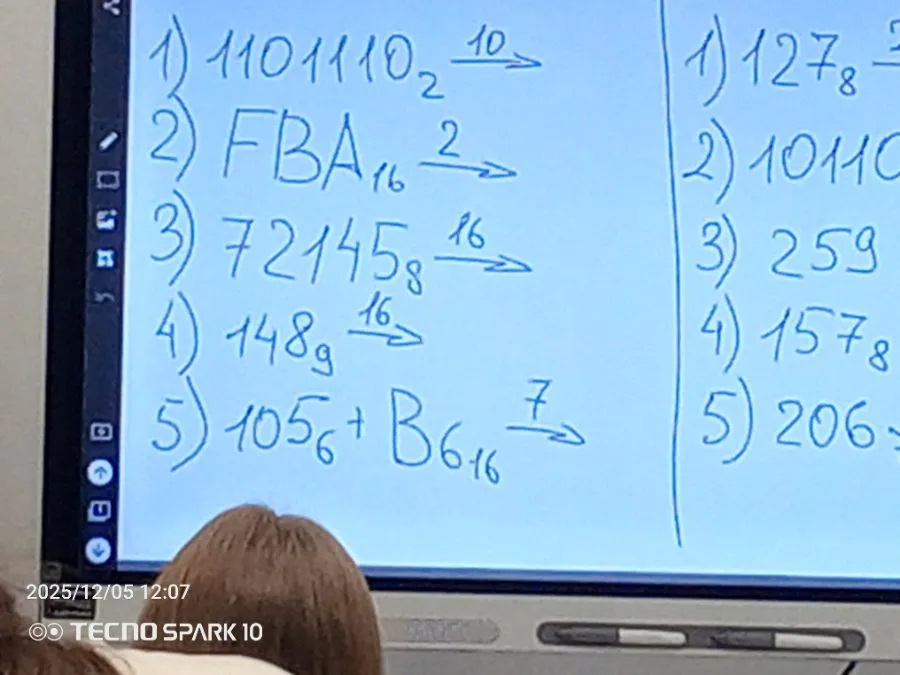 1) 1101110₂ —10→
2) FBA₁₆ —2→
3) 72145₈ —16→
4) 148₉ —16→
5) 105₆ + B6₁₆ —7→
1) 127₈
2) 10110
3) 259
4) 157₈
5) 206
2025/12/05 12:07
TECNO SPARK 10